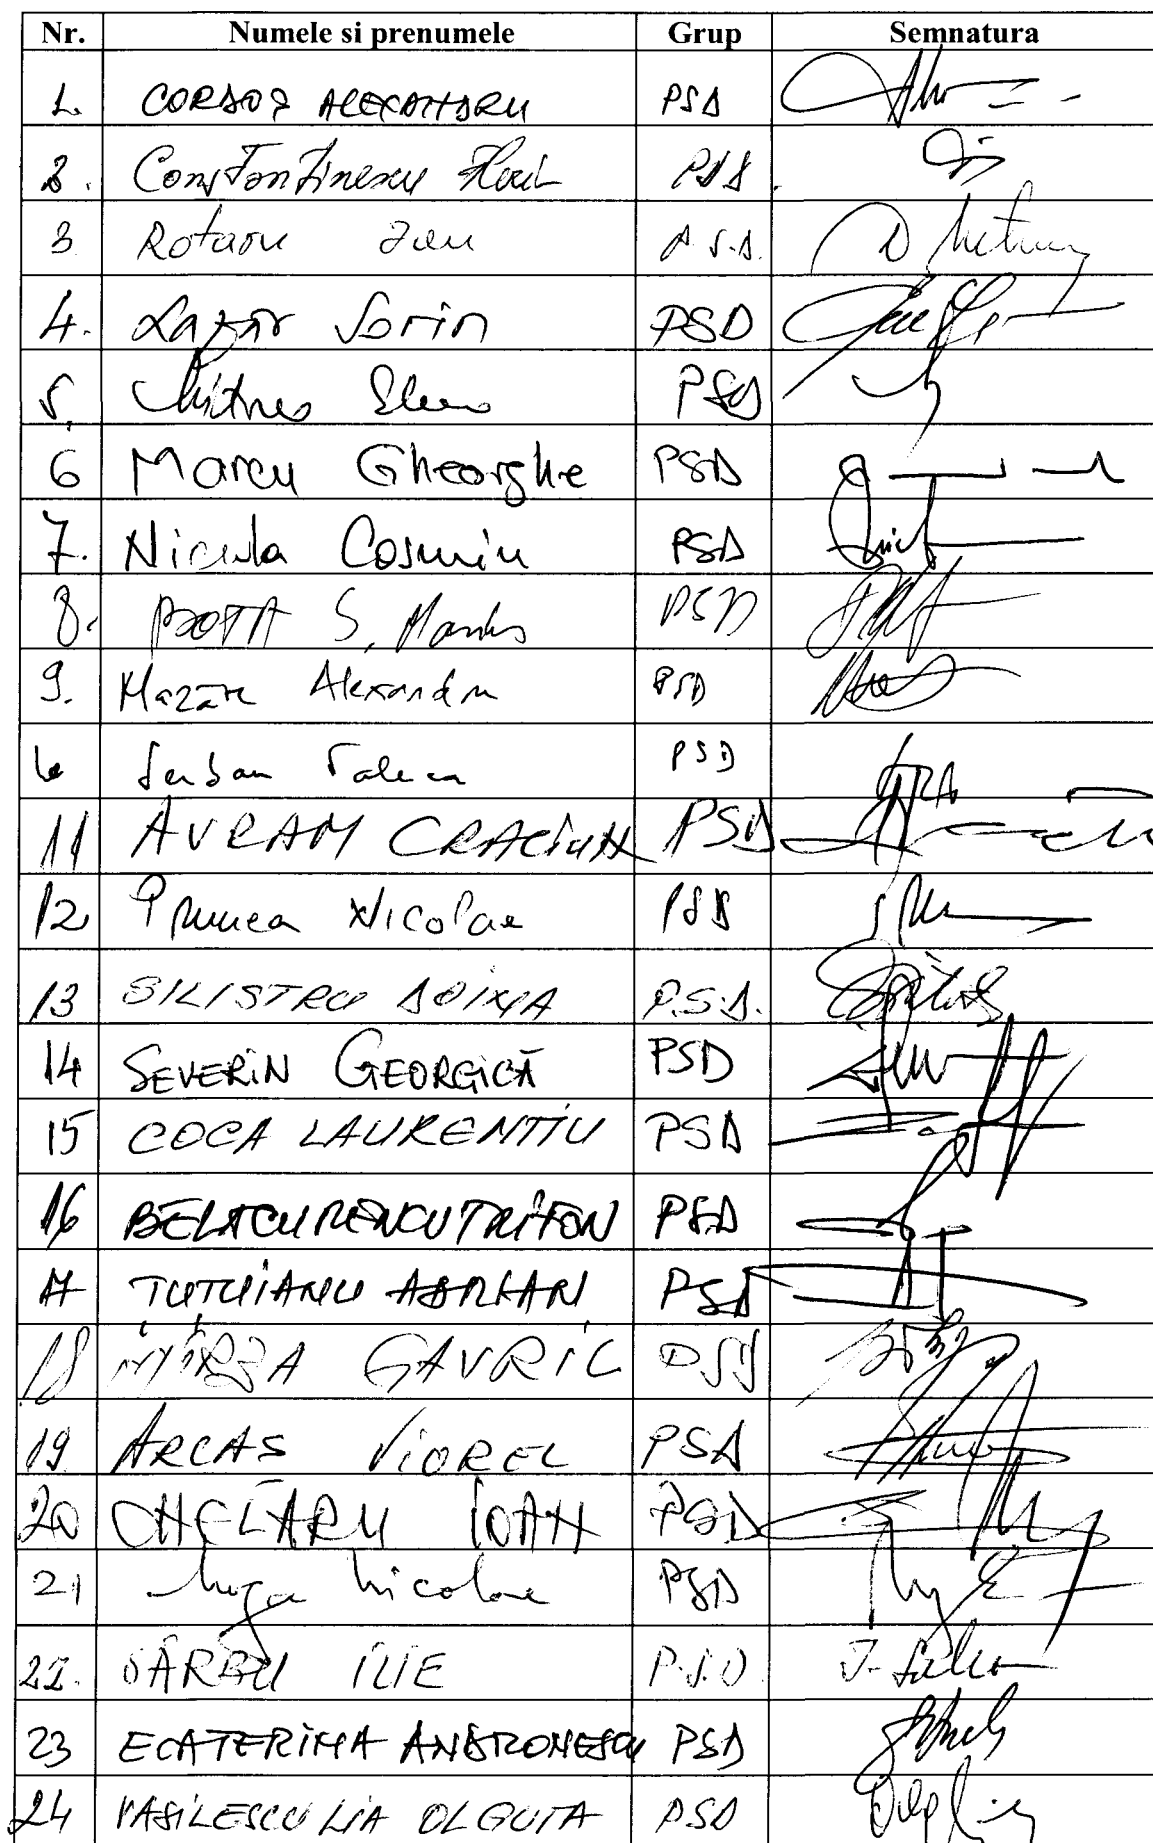 Nr. Numele si prenumele Grup Semnatura
1. CORDOȘ ALEXANDRU PSD
2. Constantinescu Florin PSD
3 Rotaru Ion P.S.D.
4. Lazăr Sorin PSD
5. Mitrea Elena PSD
6 Marcu Gheorghe PSD
7. Nicula Cosmin PSD
8. BOTA S. Marius PSD
9. Mazăre Alexandru PSD
10 Serban Valeca PSD
11 AVRAM CRACIUN PSD
12 Prunea Nicolae PSD
13 SILISTRU DOINA P.S.D.
14 SEVERIN GEORGICĂ PSD
15 COCA LAURENTIU PSD
16 BELACURENCU TRIFON PSD
17 TUTUIANU ADRIAN PSD
18 MÎRZA GAVRIL PSD
19 ARCAS VIOREL PSD
20 CHELARU IOAN PSD
21 Moga Nicolae PSD
22. SÂRBU ILIE P.S.D
23 ECATERINA ANDRONESCU PSD
24 VASILESCU LIA OLGUTA PSD